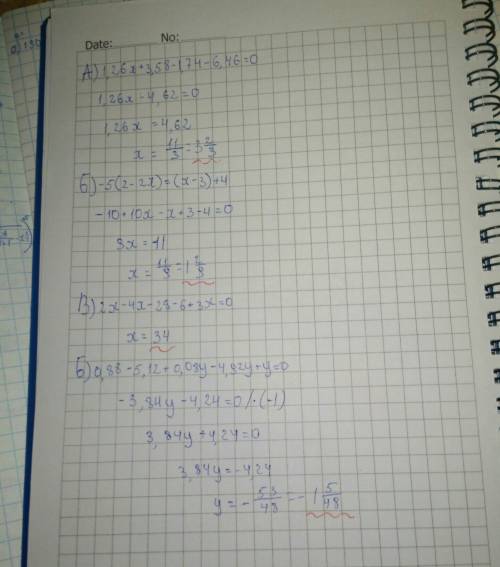 Date: No:
А) 1,26x+3,58-1,74-6,46=0
1,26x-4,62=0
1,26x=4,62
x = 11/3 = 3 2/3
Б) -5(2-2x)=(x-3)+4
-10+10x-x+3-4=0
9x=11
x = 11/9 = 1 2/9
В) 2x-4x-28-6+3x=0
x = 34
Б) 0,88-5,12+0,08y-4,92y+y=0
-3,84y-4,24=0/·(-1)
3,84y+4,24=0
3,84y=-4,24
y = -53/48 = -1 5/48